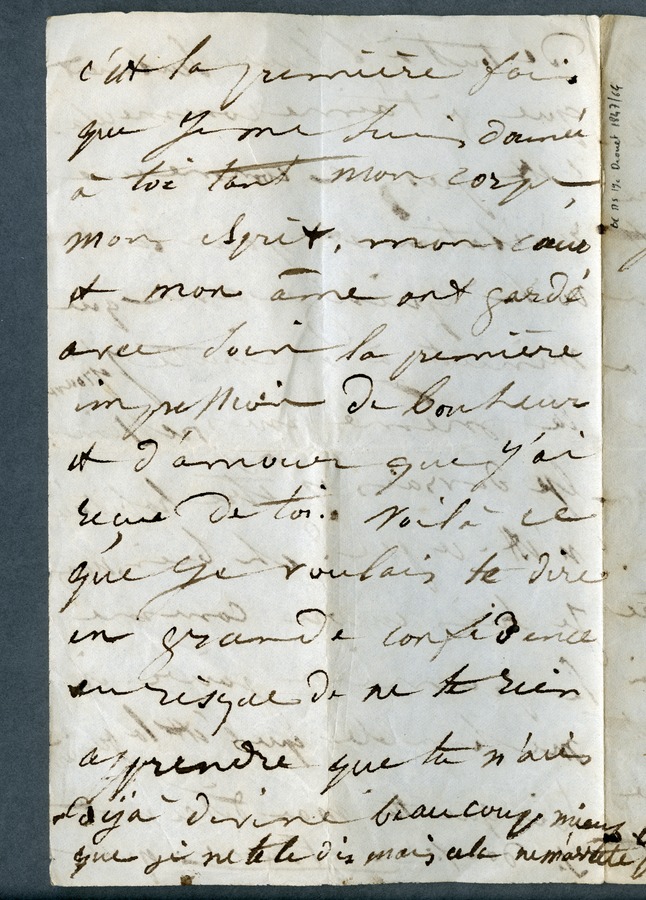 c'est la première fois
que je me suis donnée
à toi tant mon corps,
mon esprit, mon cœur
et mon âme ont gardé
avec soin la première
impression de bonheur
et d'amour que j'ai
reçue de toi. Voilà ce
que je voulais te dire
en grande confidence
au risque de ne te rien
apprendre que tu n'aies
déjà deviné beaucoup mieux
que je ne te le dis mais cela ne m'arrête